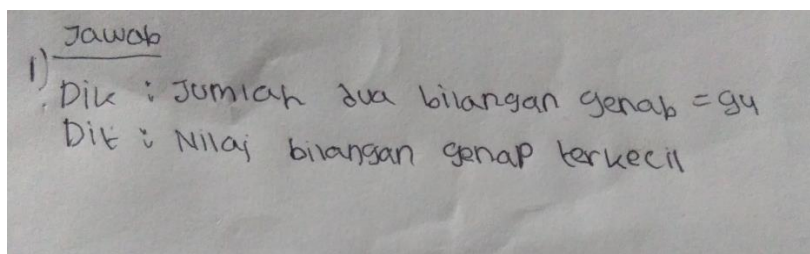 Jawab
1) Dik : Jumlah dua bilangan genab = 94
Dit : Nilai bilangan genap terkecil